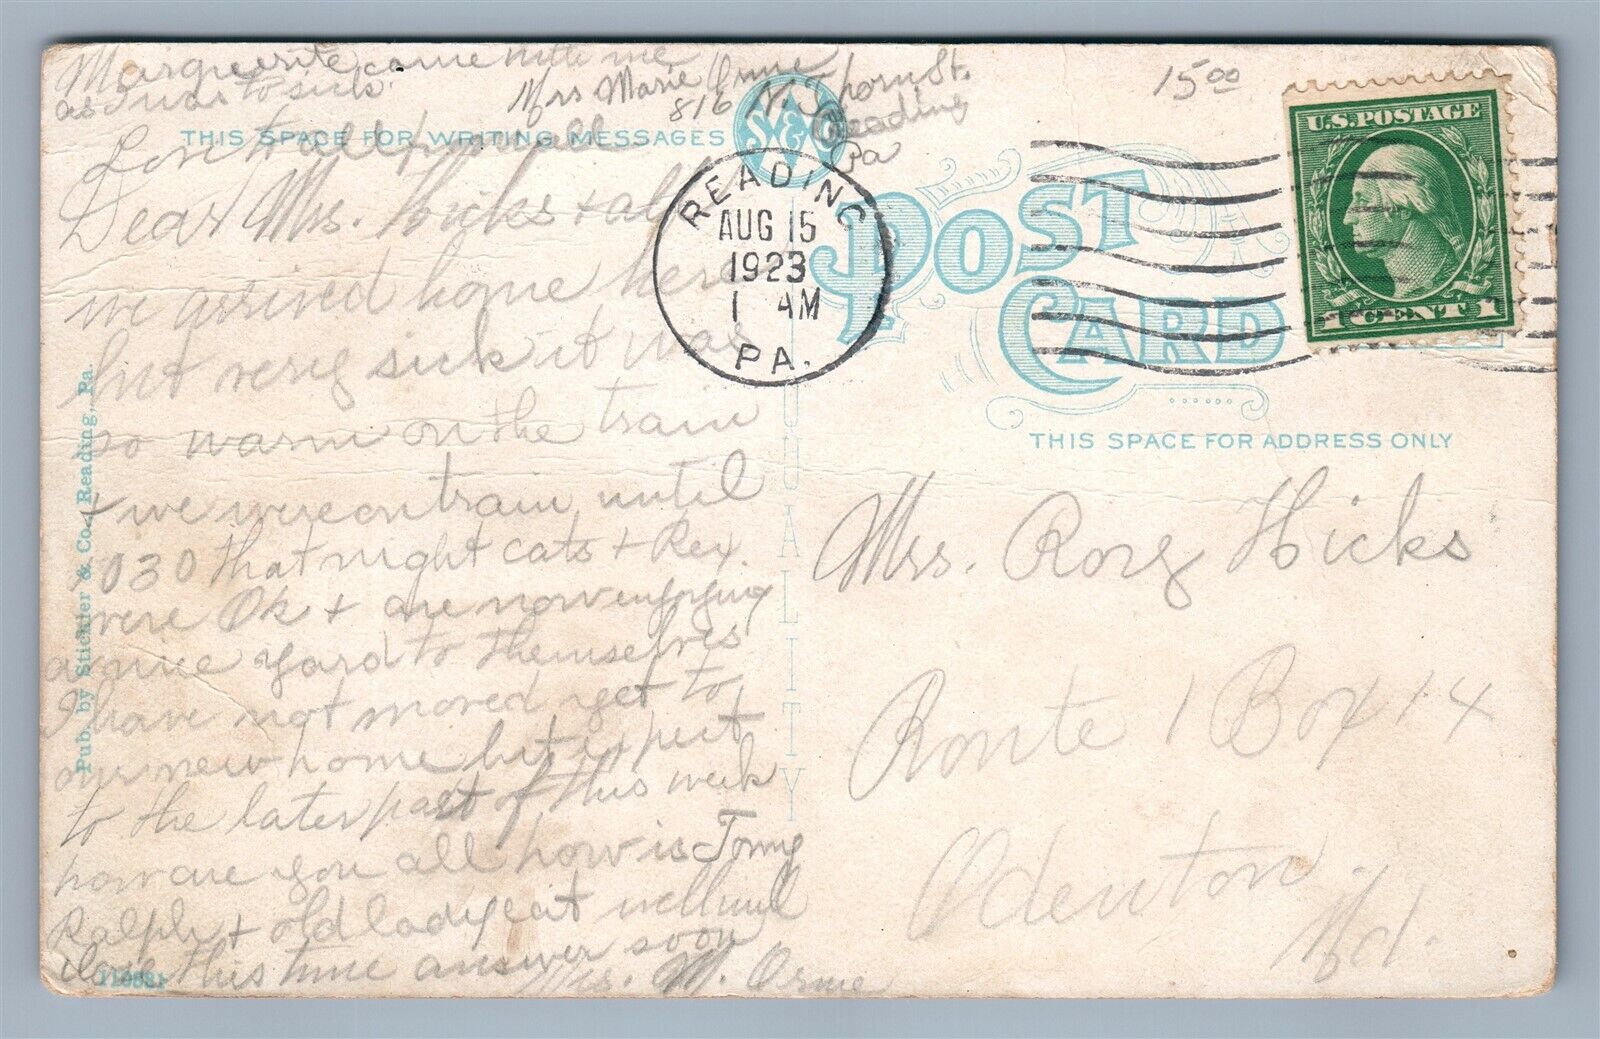 Marguerite came with me
as I was to sick.
Mrs Marie Orme
816 N. St.
Reading
Pa
15.00
THIS SPACE FOR WRITING MESSAGES
S & Co
Love to all
Dear Mrs. Hicks + all
we arrived home here
but very sick it was
so warm on the train
+ we were on train until
1030 that night cats + Rex
were Ok + are now enjoying
a nice yard to themselves
I have not moved yet to
our new home but expect
to the later part of this week
how are you all how is Tomy
Ralph + old lady cat well will
close this time answer soon
Mrs. M. Orme
READING
AUG 15
1923
1 AM
PA.
U.S. POSTAGE
1 CENT 1
POST
CARD
THIS SPACE FOR ADDRESS ONLY
QUALITY
Mrs. Rory Hicks
Route 1 Box 14
Odenton.
Md.
Pub. by Stickler & Co., Reading, Pa.